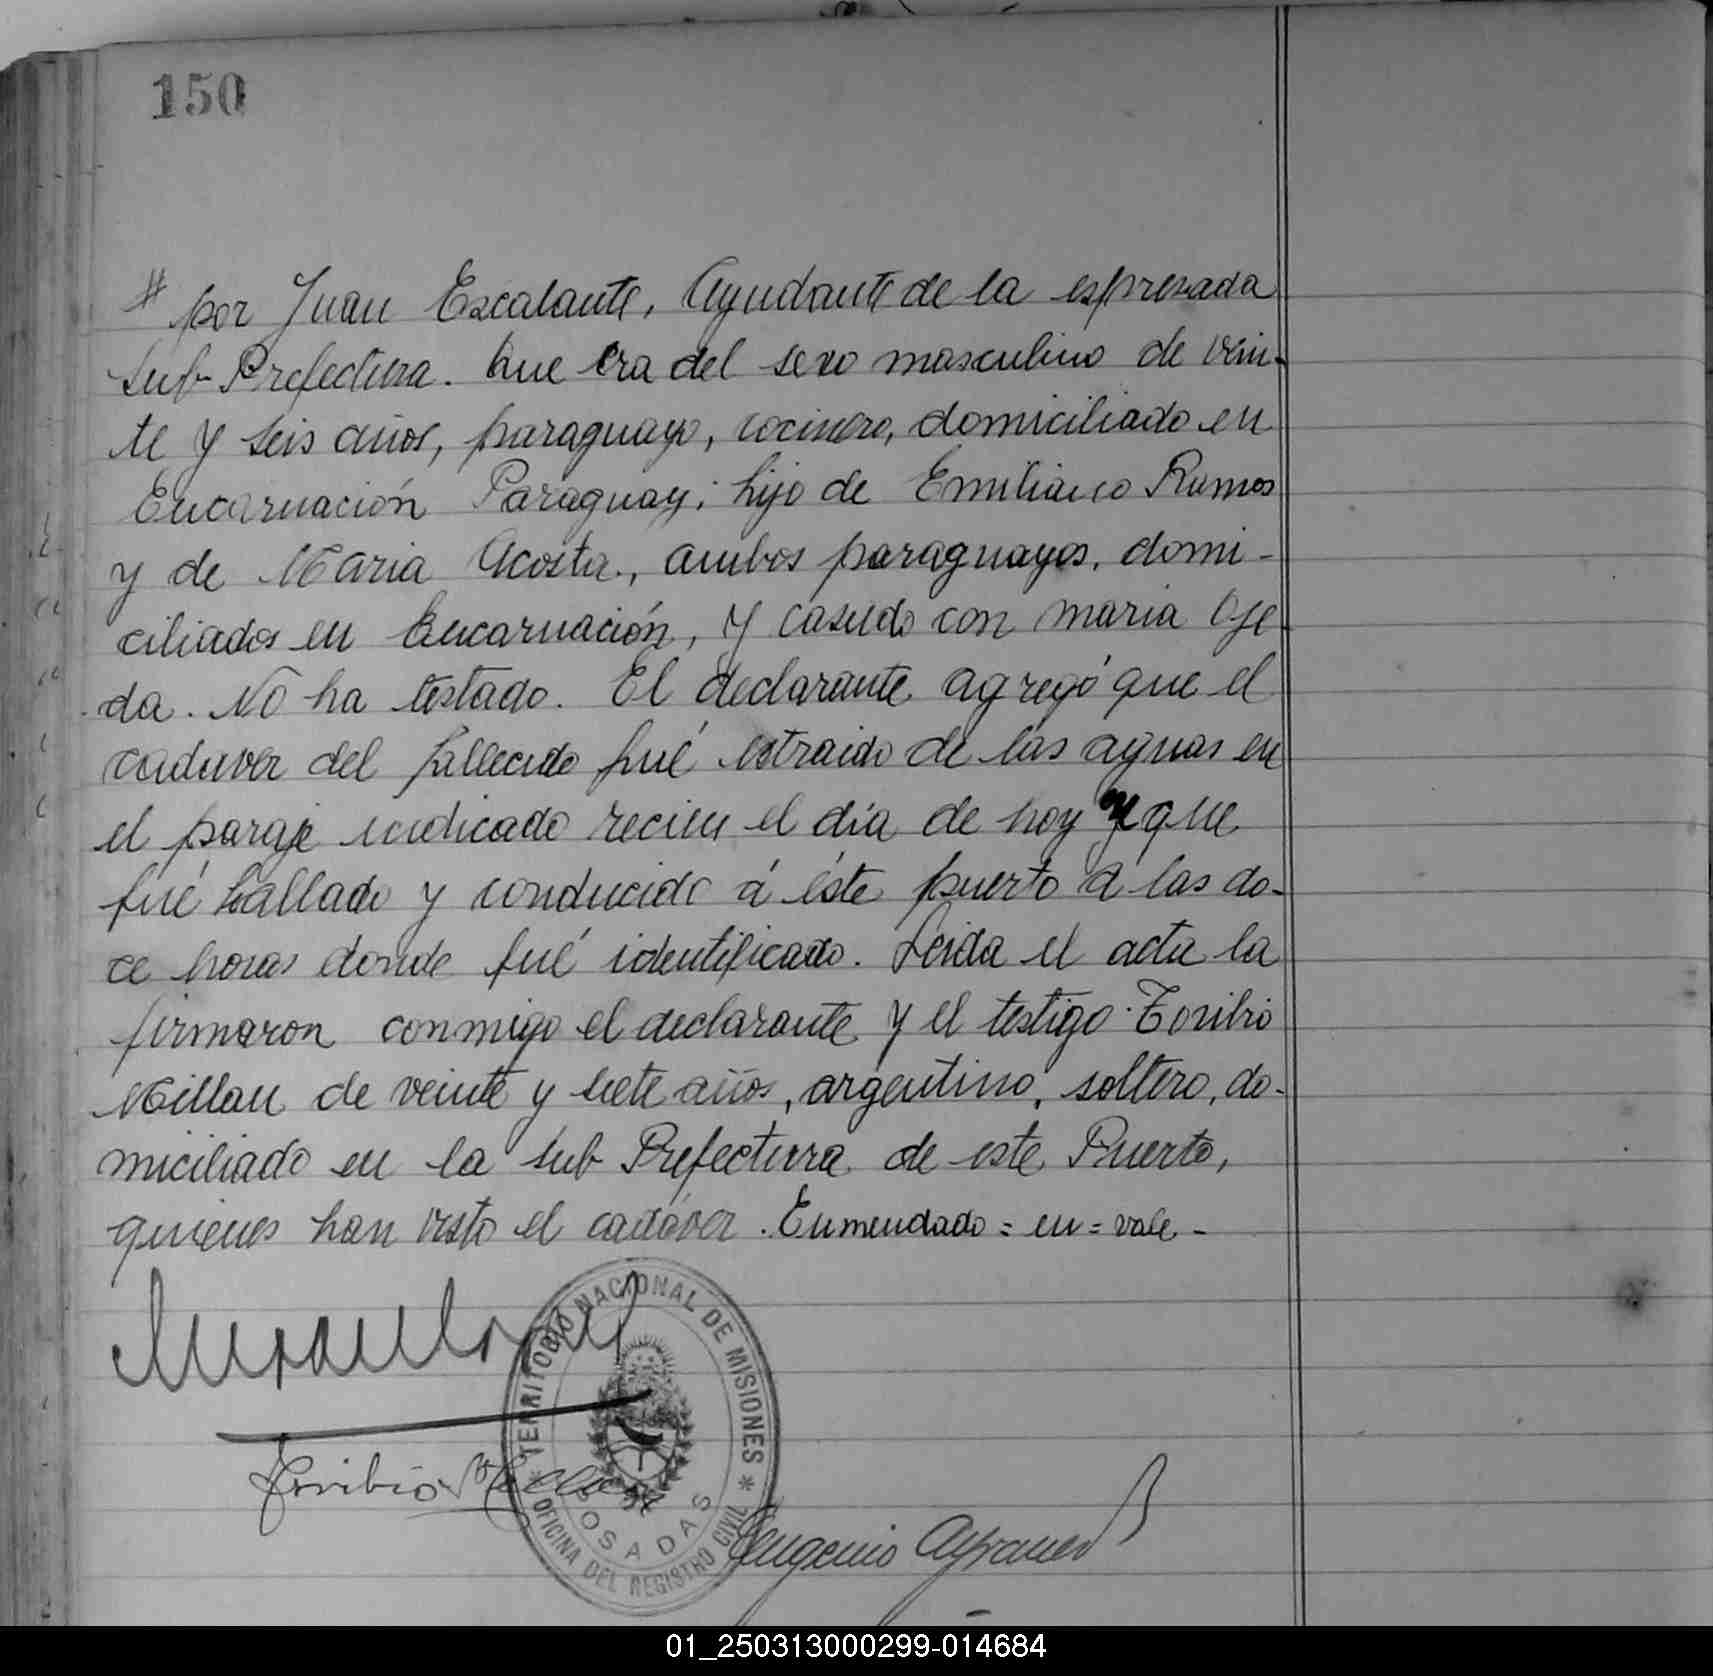 150
# por Juan Escalante, Ayudante de la espresada
Sub-Prefectura. Que era del sexo masculino de vein-
te y seis años, paraguayo, cocinero, domiciliado en
Encarnación Paraguay; hijo de Emiliano Ramos
y de Maria Acosta, ambos paraguayos, domi-
ciliados en Encarnación, y casado con maria Oje
da. No ha testado. El declarante agregó que el
cadaver del fallecido fué estraido de las aguas en
el paraje indicado recien el día de hoy y que
fué hallado y conducido á éste puerto á las do-
ce horas donde fué identificado. Leida el acta la
firmaron conmigo el declarante y el testigo Toribio
Millan de veinte y siete años, argentino, soltero, do-
miciliado en la Sub Prefectura de este Puerto,
quienes han visto el cadáver. Enmendado = en = vale -
TERRITORIO NACIONAL DE MISIONES
* OFICINA DEL REGISTRO CIVIL *
POSADAS
Toribio Millan
Eugenio
01_250313000299-014684